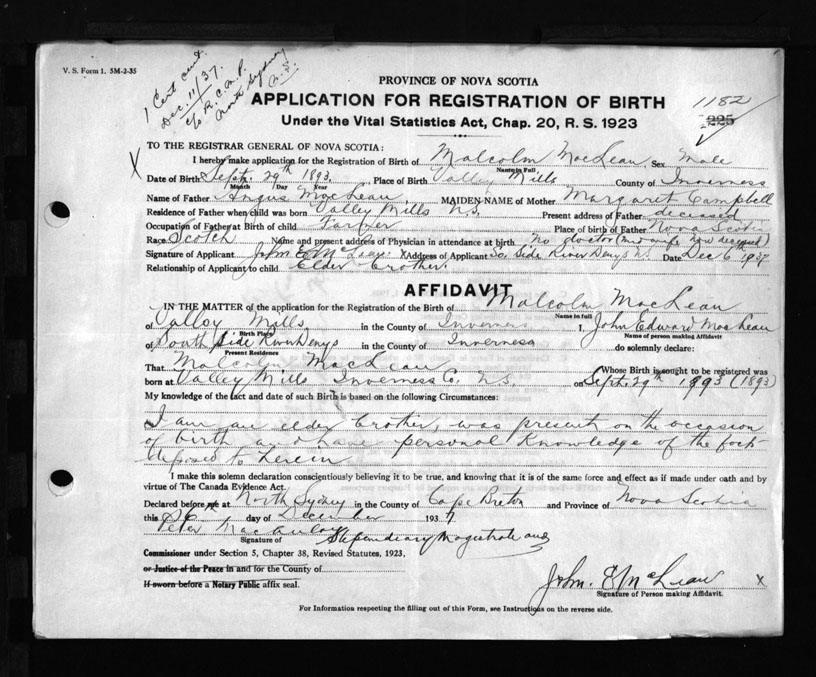 V. S. Form 1. 5M-2-35
1 Cert out.
Dec. 11/37.
c/o R. C. M. P.
North Sydney
N. S.
PROVINCE OF NOVA SCOTIA
APPLICATION FOR REGISTRATION OF BIRTH
Under the Vital Statistics Act, Chap. 20, R. S. 1923
1182
225
TO THE REGISTRAR GENERAL OF NOVA SCOTIA:
X
I hereby make application for the Registration of Birth of Malcolm MacLean Sex Male
Name in Full
Date of Birth Sept. 29th 1893. Place of Birth Valley Mills County of Inverness
Month Day Year
Name of Father Angus MacLean, MAIDEN NAME of Mother Margaret Campbell
Residence of Father when child was born Valley Mills N.S. Present address of Father deceased
Occupation of Father at Birth of child Farmer Place of birth of Father Nova Scotia
Race Scotch Name and present address of Physician in attendance at birth no doctor (midwife now deceased)
Signature of Applicant John E McLean X Address of Applicant So. Side River Denys N.S. Date Dec 6 1937
Relationship of Applicant to child Elder brother.
AFFIDAVIT
IN THE MATTER of the application for the Registration of the Birth of Malcolm MacLean
Name in full
of Valley Mills in the County of Inverness I, John Edward MacLean
Birth Place Name of person making Affidavit
of South Side River Denys in the County of Inverness do solemnly declare:
Present Residence
That Malcolm MacLean Whose Birth is sought to be registered was
born at Valley Mills Inverness Co. N.S. on Sept. 29th 1893 (1893)
My knowledge of the fact and date of such Birth is based on the following Circumstances:
I am an elder brother, was present on the occasion
of birth and have personal knowledge of the fact
deposed to herein
I make this solemn declaration conscientiously believing it to be true, and knowing that it is of the same force and effect as if made under oath and by
virtue of The Canada Evidence Act.
Declared before me at North Sydney in the County of Cape Breton and Province of Nova Scotia
this day of December 1937
Peter MacAulay Stipendiary Magistrate and
Signature of
Commissioner under Section 5, Chapter 38, Revised Statutes, 1923,
or Justice of the Peace in and for the County of
If sworn before a Notary Public affix seal.
John. E McLean X
Signature of Person making Affidavit.
For Information respecting the filling out of this Form, see Instructions on the reverse side.